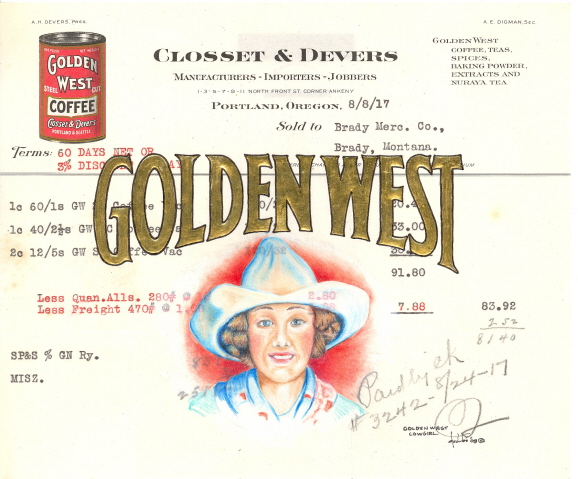 A. H. DEVERS, PRES.
A. E. DIGMAN, SEC.
GOLDEN WEST
STEEL CUT
COFFEE
Closset & Devers
PORTLAND & SEATTLE
CLOSSET & DEVERS
MANUFACTURERS - IMPORTERS - JOBBERS
1-3-5-7-9-11 NORTH FRONT ST. CORNER ANKENY
PORTLAND, OREGON, 8/8/17
GOLDEN WEST
COFFEE, TEAS,
SPICES,
BAKING POWDER,
EXTRACTS AND
NURAYA TEA
Sold to Brady Merc. Co.,
Brady, Montana.
Terms: 60 DAYS NET OR
3%
GOLDEN WEST
1c 60/1s GW
1c 40/2½s GW
33.00
2c 12/5s GW Vac
91.80
Less Quan.Alls. 280# @ 2.80
Less Freight 470# @ 7.88 83.92
2 52
81 40
SP&S % GN Ry.
MISZ.
Paid by ck
# 3242-8/24-17
GOLDEN WEST
COWGIRL